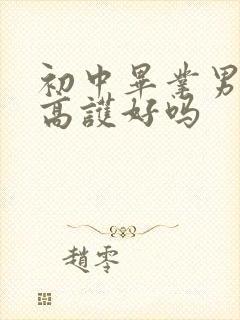 初中畢業男
高護好吗
趙零